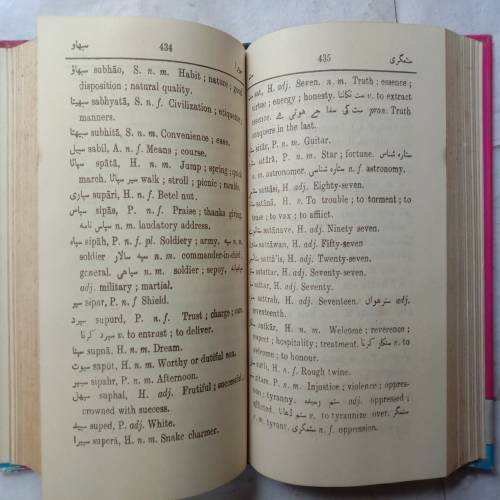 سبهاو 434
سبهاؤ subhāo, S. n. m. Habit ; nature ; good
disposition ; natural quality.
سبهيتا sabhyatā, S. n. f. Civilization ; etiquette ;
manners.
سبهيتا subhitā, S. n. m. Convenience ; ease.
سبيل sabil, A. n. f. Means ; course.
سپاٹا spātā, H. n. m. Jump ; spring ; quick
march. سير سپاٹا walk ; stroll ; picnic ; ramble.
سپاری supāri, H. n. f. Betel nut.
سپاس sipās, P. n. f. Praise ; thanks giving.
سپاس نامه n. m. laudatory address.
سپاه sipāh, P. n. f. pl. Soldiery ; army. سپه n. m.
soldier سپه سالار n. m. commander-in-chief
general. سپاهی n. m. soldier ; sepoy, سپاهيانه
adj. military ; martial.
سپر sipar, P. n. f Shield.
سپرد supurd, P. n. f. Trust ; charge ; care.
سپرد کرنا v. to entrust ; to deliver.
سپنا supnā, H. n. m. Dream.
سپوت sapūt, H. n. m. Worthy or dutiful son.
سپہر sipahr, P. n. m. Afternoon.
سپهل suphal, H. adj. Frutiful ; successful ;
crowned with success.
سپيد suped, P. adj. White.
سپيرا superā, H. n. m. Snake charmer.
435 ستمگری
sat, H. adj. Seven. n. m. Truth ; essence ;
virtue ; energy ; honesty. ست نکالنا v. to extract
essence. ست کی سدا هے هوتی هے pron. Truth
conquers in the last.
sitār, P. n. m. Guitar.
sitārā, P. n. m. Star ; fortune. ستاره شناس
n. m. astronomer. ستاره شناسی n. f. astronomy.
sattāsi, H. adj. Eighty-seven.
satānā, H. v. To trouble ; to torment ; to
tease ; to vax ; to afflict.
sattānave, H. adj. Ninety seven.
sattāwan, H. adj. Fifty-seven
sattā'is, H. adj. Twenty-seven.
satattar, H. adj. Seventy-seven.
sattar, H. adj. Seventy.
sattrah, H. adj. Seventeen. سترهواں adj.
seventeenth.
satkār, H. n. m. Welcome ; reverence ;
respect ; hospitality ; treatment. ستکار کرنا v. to
welcome ; to honour.
satli, H. n. f. Rough twine.
sitam, P. n. m. Injustice ; violence ; oppres-
sion ; tyranny. ستم رسيده adj. oppressed ;
afflicted. ستم ڈهانا v. to tyrannize over. ستمگر
n. m. tyrant. ستمگری n. f. oppression.